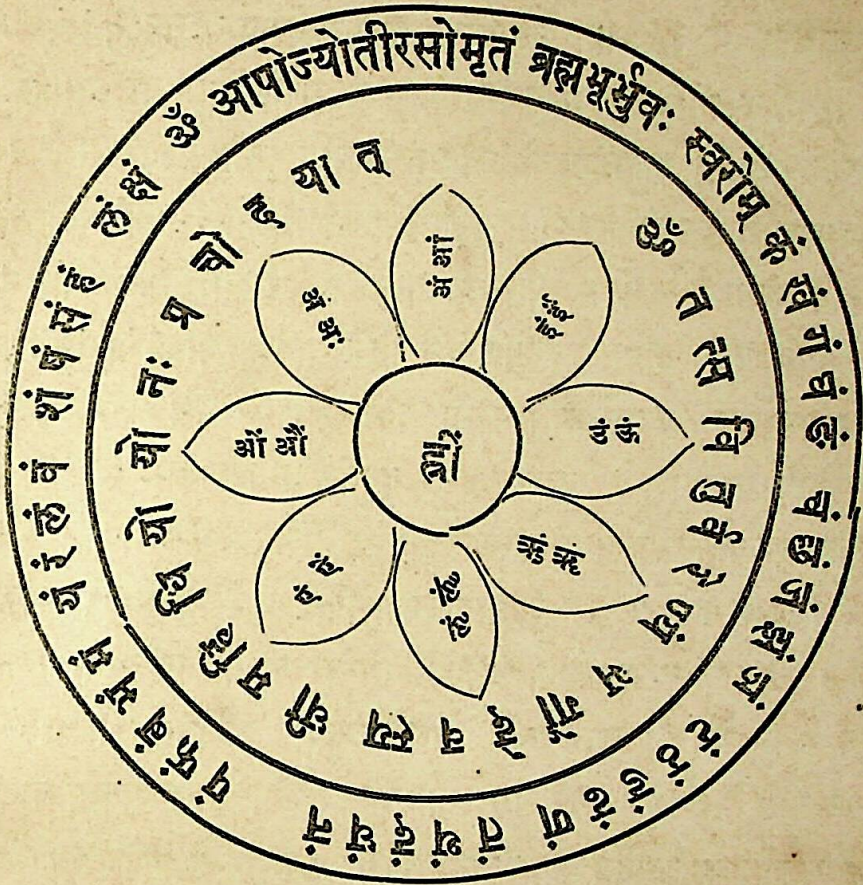 ॐ आपोज्योतीरसोमृतं ब्रह्मभूर्भुवः स्वरोम् कं खं गं घं ङं चं छं जं झं ञं टं ठं डं ढं णं तं थं दं धं नं पं फं बं भं मं यं रं लं वं शं षं सं हं लं क्षं
ॐ त त्स वि तु र्व रे ण्यं भ र्गो दे व स्य धी म हि धि यो यो नः प्र चो द या त्
अं आं
इं ईं
उं ऊं
ऋं ॠं
ऌं ॡं
एं ऐं
ओं औं
अं अः